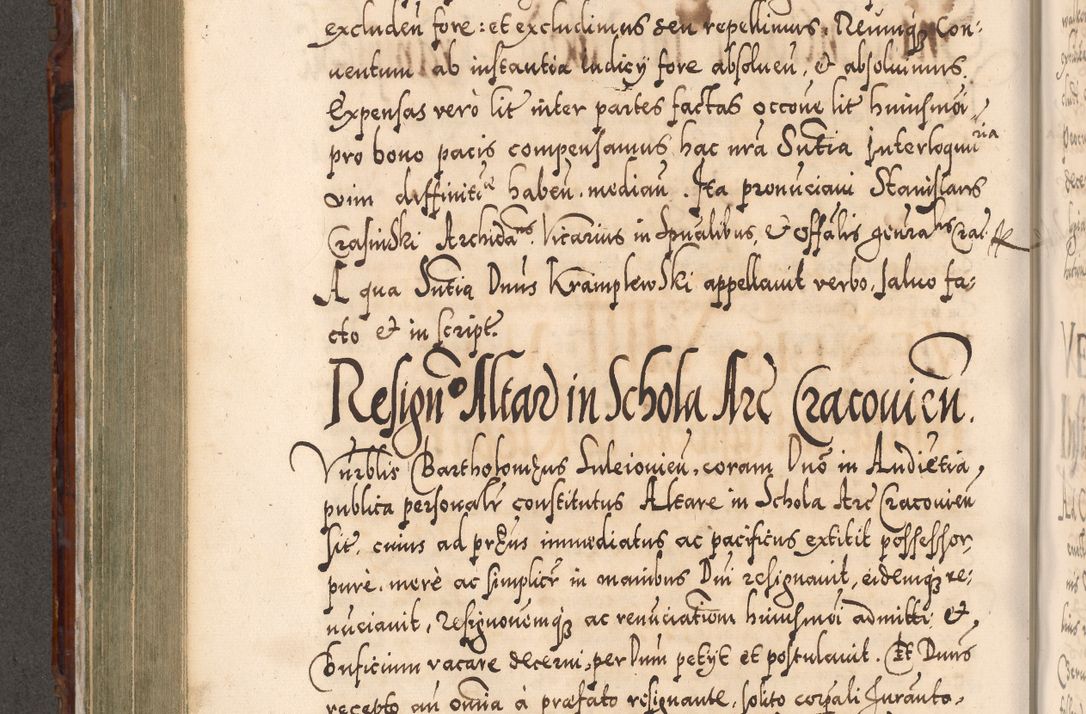 excluden fore: et excludimus seu repellimus. Reumqȝ Con-
uentum ab instantia Iudicij fore absoluen, & absoluimus.
Expensas verò lit inter partes factas occoue lit huiusmoi
pro bono pacis compensamus hac nrã Sñtia Interloquu
ria
vim diffinitiᵃ haben. median. Ita pronũciaui Stanislaus
Crasinski Archidaⁿˢ. Vicarius in Spũalibus, & offãlis geñralis Crac.
A qua Sñtia Dnus Kramplewski appellauit verbo, saluo fa-
cto & in script.
Resignᵒ Altar in Schola Arc Cracouien.
Vnrblis Bartholomęus Suleiouien, coram Dnõ in Audiẽtia
publica personalr constitutus Altare in Schola Arc Cracouien
sit. cuius ad pręns immediatus ac pacificus extitit possessor,
purè, merè ac simplicr in manibus Dni resignauit, eidemqȝ re-
nũciauit, Resignonemqȝ ac renũciationem huiusmoi admitti, &
Bnficium vacare decerni, per Dnum petijt et postulauit. Et Dnus
recepto an omnia à præfato resignante, solito corpali Iuranto